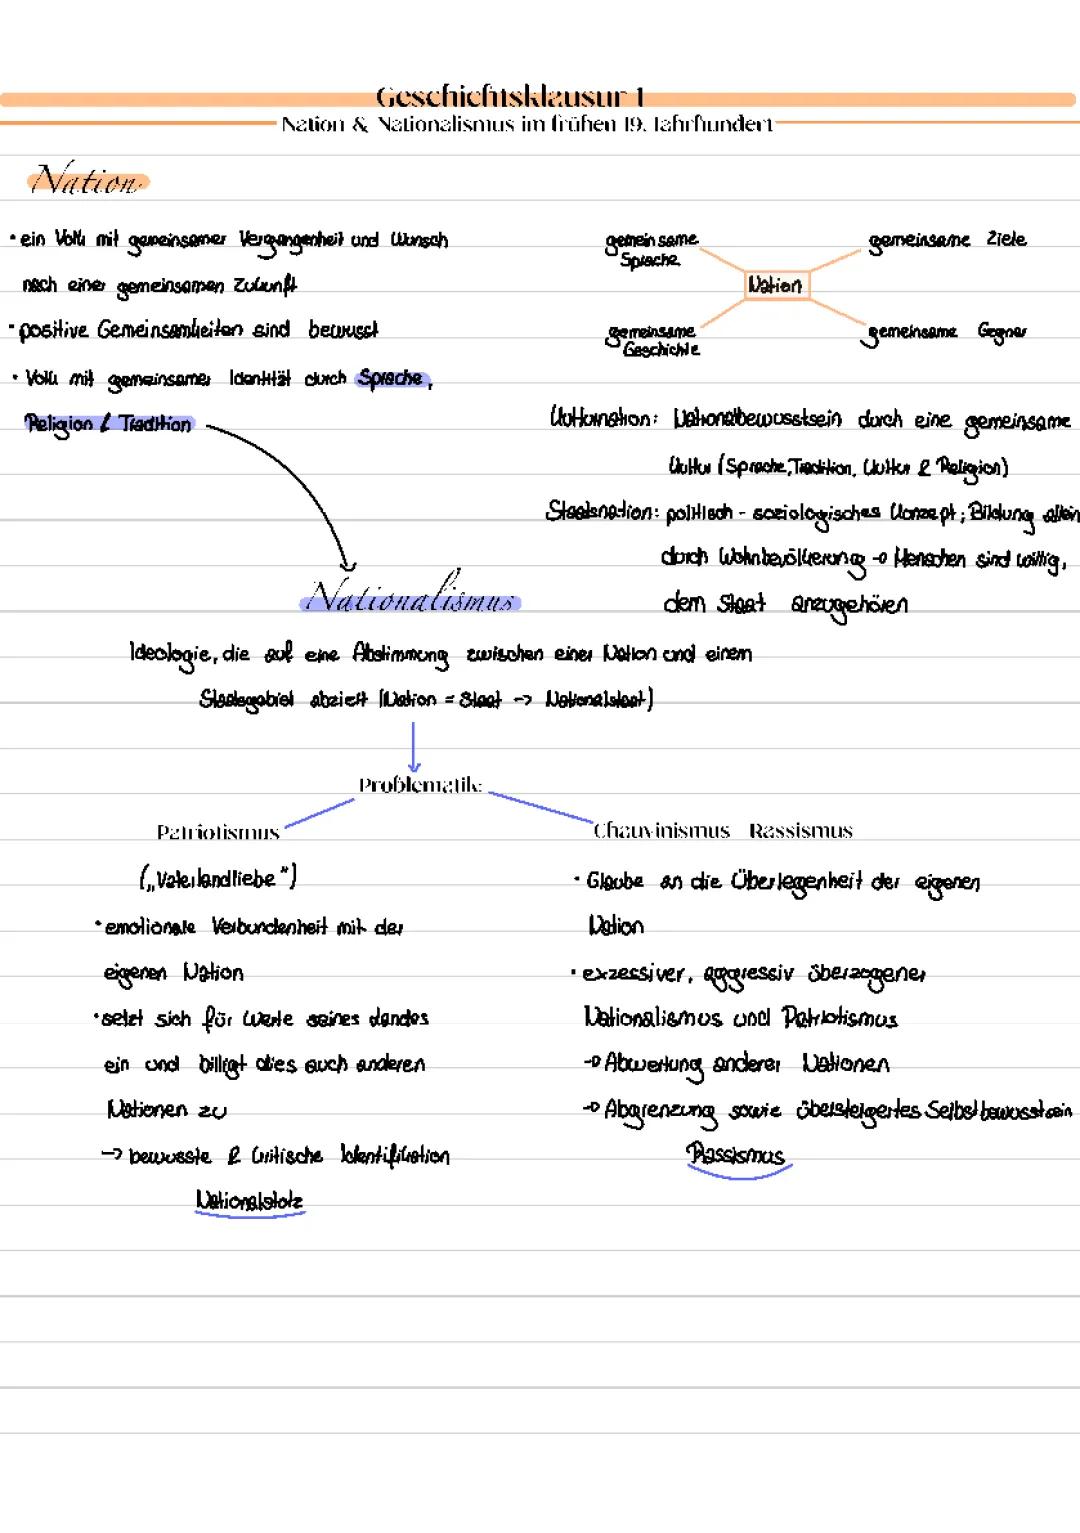 Geschichtsklausur 1
Nation & Nationalismus im frühen 19. Jahrhundert
Nation
• ein Volk mit gemeinsamer Vergangenheit und Wunsch
nach einer gemeinsamen Zukunft
• positive Gemeinsamkeiten sind bewusst
• Volk mit gemeinsamer Identität durch Sprache,
Religion & Tradition
gemeinsame
Sprache
gemeinsame Ziele
Nation
gemeinsame
Geschichte
gemeinsame Gegner
Kulturnation: Nationalbewusstsein durch eine gemeinsame
Kultur (Sprache, Tradition, Kultur & Religion)
Staatsnation: politisch - soziologisches Konzept; Bildung allein
durch Wohnbevölkerung → Menschen sind willig,
dem Staat anzugehören
Nationalismus
Ideologie, die auf eine Abstimmung zwischen einer Nation und einem
Staatsgebiet abzielt (Nation = Staat -> Nationalstaat)
Problematik
Patriotismus
(„Vaterlandliebe")
• emotionale Verbundenheit mit der
eigenen Nation
• setzt sich für Werte seines Landes
ein und billigt dies auch anderen
Nationen zu
→ bewusste & kritische Identifikation
Nationalstolz
Chauvinismus Rassismus
• Glaube an die Überlegenheit der eigenen
Nation
• exzessiver, aggressiv überzogener
Nationalismus und Patriotismus
→ Abwertung anderer Nationen
→ Abgrenzung sowie übersteigertes Selbstbewusstsein
Rassismus